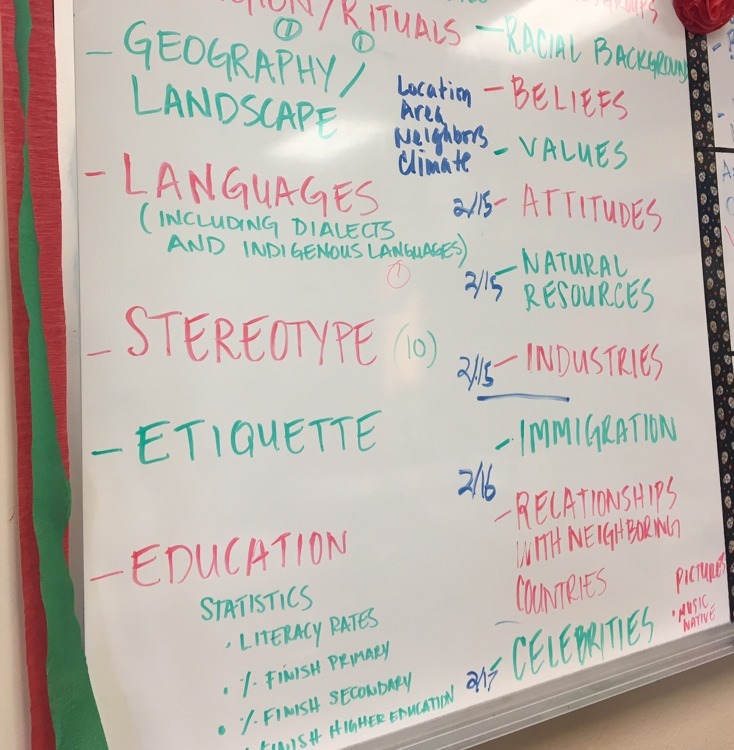 /RITUALS
- GEOGRAPHY/
LANDSCAPE
- LANGUAGES
(INCLUDING DIALECTS
AND INDIGENOUS LANGUAGES)
- STEREOTYPE (10)
- ETIQUETTE
- EDUCATION
STATISTICS
• LITERACY RATES
• % FINISH PRIMARY
• % FINISH SECONDARY
FINISH HIGHER EDUCATION
- RACIAL BACKGROUND
Location
Area
Neighbors
Climate
- BELIEFS
- VALUES
2/15 - ATTITUDES
2/15 - NATURAL
RESOURCES
2/15 - INDUSTRIES
- IMMIGRATION
2/16
- RELATIONSHIPS
WITH NEIGHBORING
COUNTRIES
- CELEBRITIES
PICTURES
• MUSIC
NATIVE